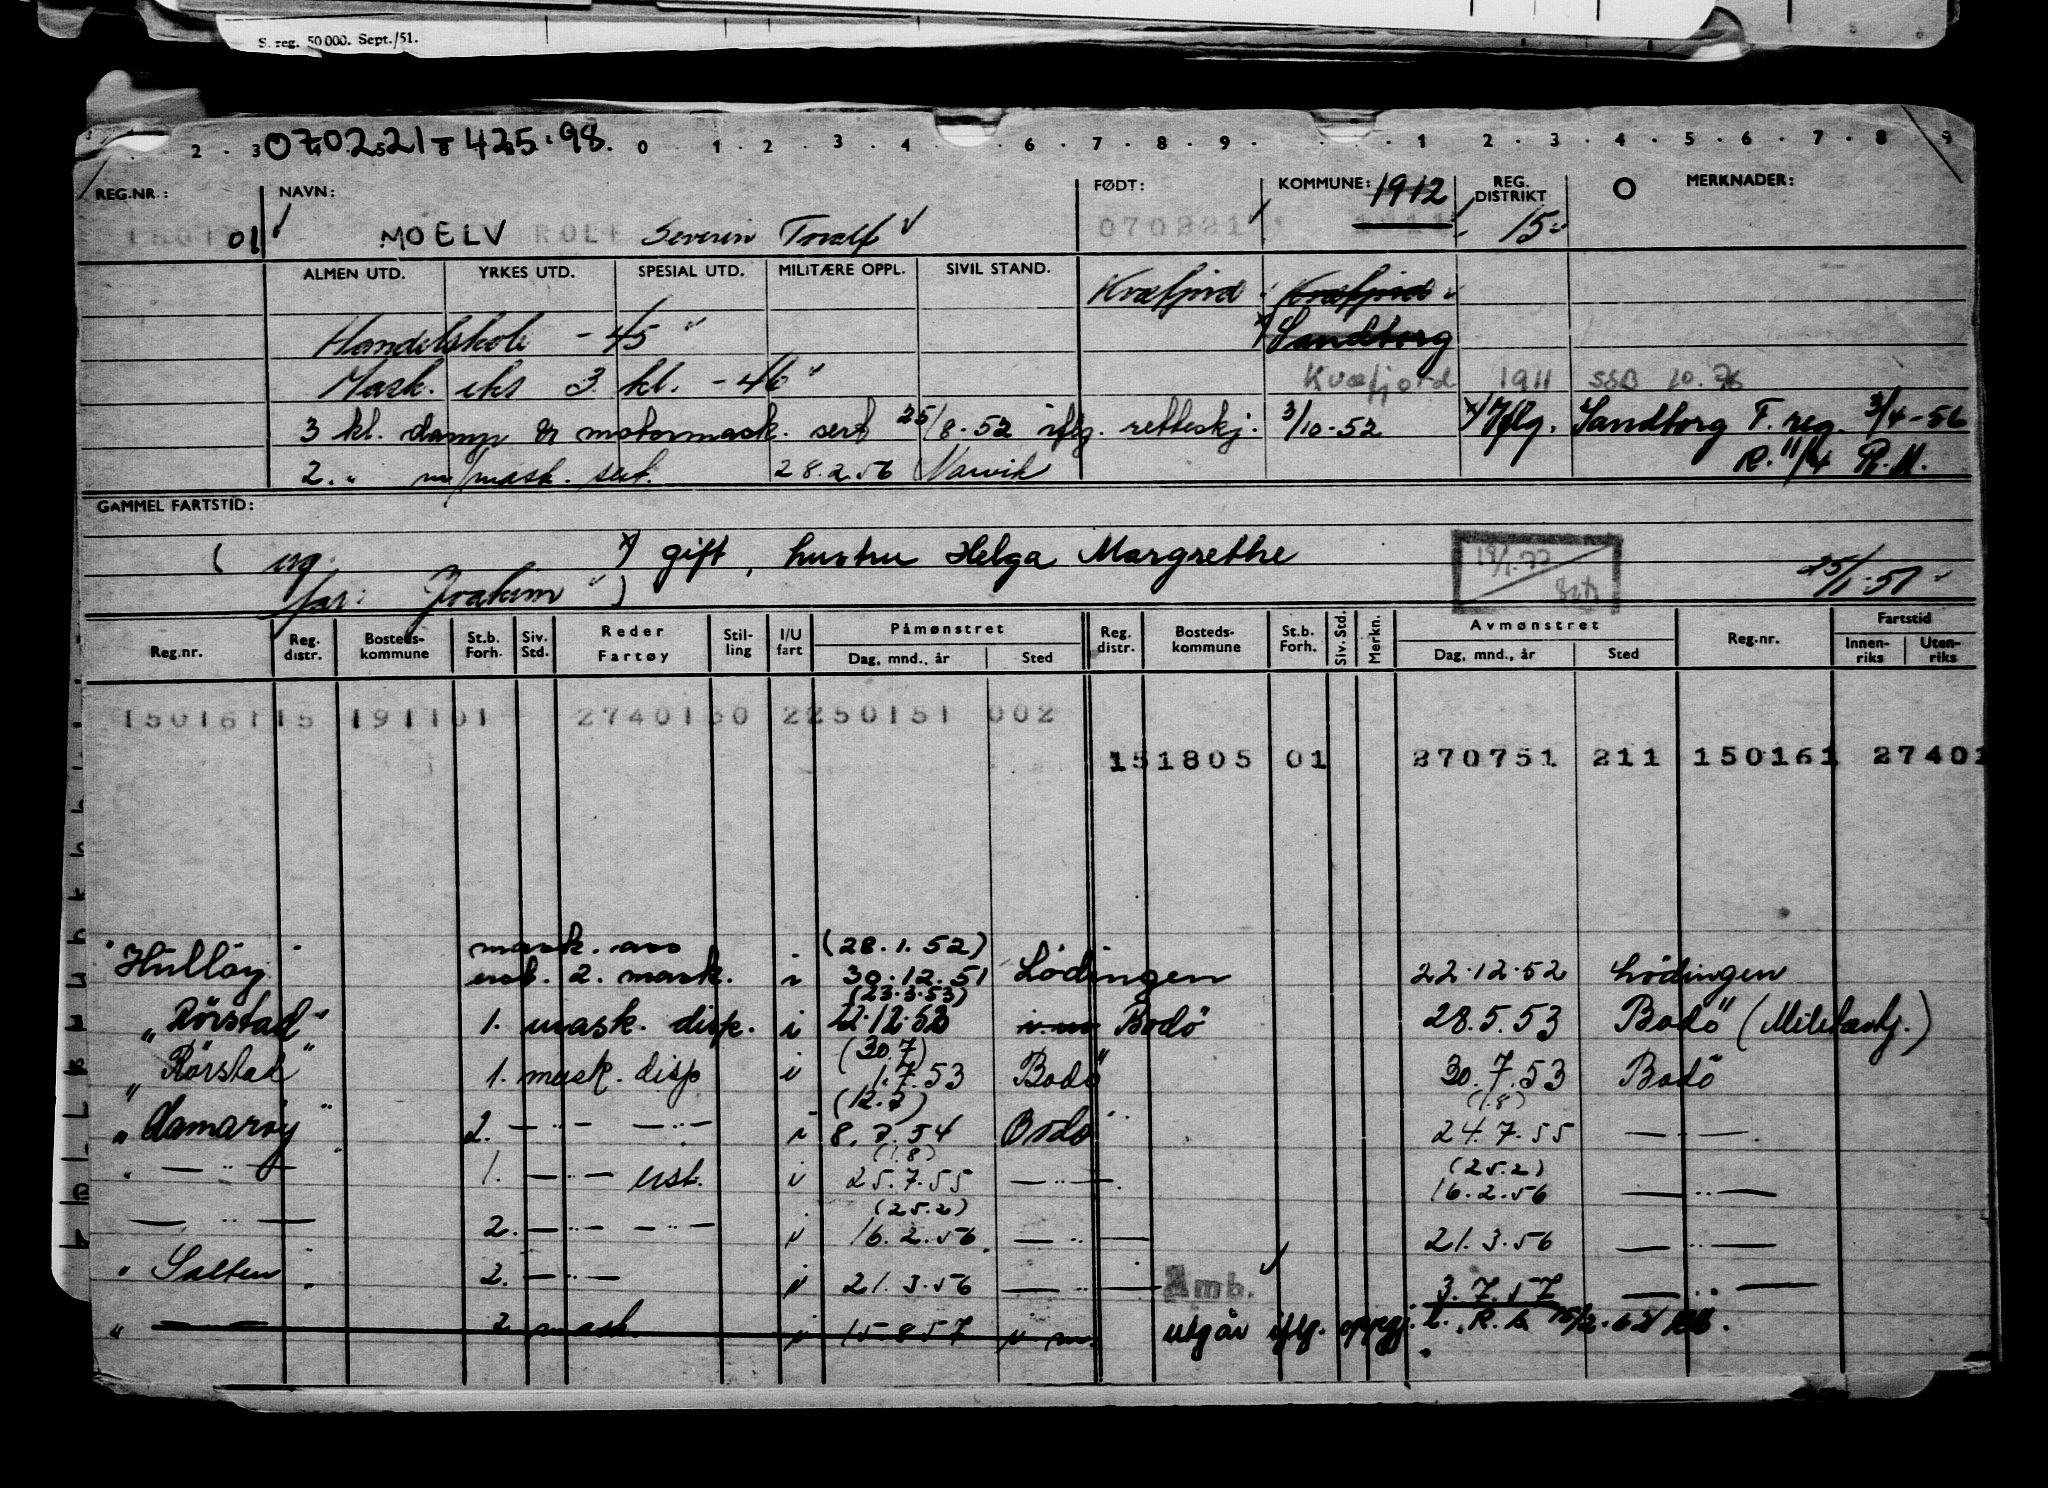 S. reg. 50 000. Sept./51.
070221-425.98.
2 . 3 0 . 1 2 . 3 . 4 . 6 . 7 . 8 . 9 . 1 . 2 . 3 . 4 . 5 . 6 . 7 . 8 . 9
REG.NR.: NAVN: FØDT: KOMMUNE: 1912 REG. DISTRIKT MERKNADER:
01 MOELV ROLF Severin Toralf 070221 1911 15
ALMEN UTD. YRKES UTD. SPESIAL UTD. MILITÆRE OPPL. SIVIL STAND. Kvæfjord Kvæfjord
Handelskole - 45 Sandtorg
Mask. eks 3. kl. - 46 Kvæfjord 1911 SSB 10.76
3 kl. damp & motormask. sert 25/8.52 iflg. retteskj. 3/10-52 x) Iflg. Sandtorg F. reg. 3/4-56
2. " m/mask. sert. 28.2.56 Narvik R. 11/4 R.M.
GAMMEL FARTSTID:
( ug. x) gift, hustru Helga Margrethe
far: Joakim ) 25/1-51
Reg.nr. Reg. distr. Bosteds-kommune St.b. Forh. Siv. Std. Reder Fartøy Stil-ling I/U fart Påmønstret Dag, mnd., år Sted Reg. distr. Bosteds-kommune St.b. Forh. Siv. Std. Merkn. Avmønstret Dag, mnd., år Sted Reg.nr. Fartstid Innen-riks Uten-riks
15016115 191101 2740130 2250151 002
151805 01 270751 211 150161 27401
mask. ass (28.1.52)
"Hulløy" ust. 2. mask. i 30.12.51 Lödingen 22.12.52 Lödingen
(23.3.53)
"Rörstad" 1. mask. disp. i 22.12.52 Bodö 28.5.53 Bodö (Militærtj.)
(30.7)
"Rörstad" 1. mask. disp i 1.7.53 Bodö 30.7.53 Bodö
(12.7) (1.8)
"Hamarøy" 2. — " — — " — i 8.7.54 Bodö 24.7.55 — " —
(1.8) (25.2)
" — " — 1. — " — ust. i 25.7.55 — " — 16.2.56 — " —
(25.2)
— " — 2. — " — — " — i 16.2.56 — " — 21.3.56 — " —
"Salten" 2. — " — i 21.3.56 — " — Amb. 3.7.57 — " —
" — 2 mask. i 15.8 57 i m. utgår iflg. oppgj.